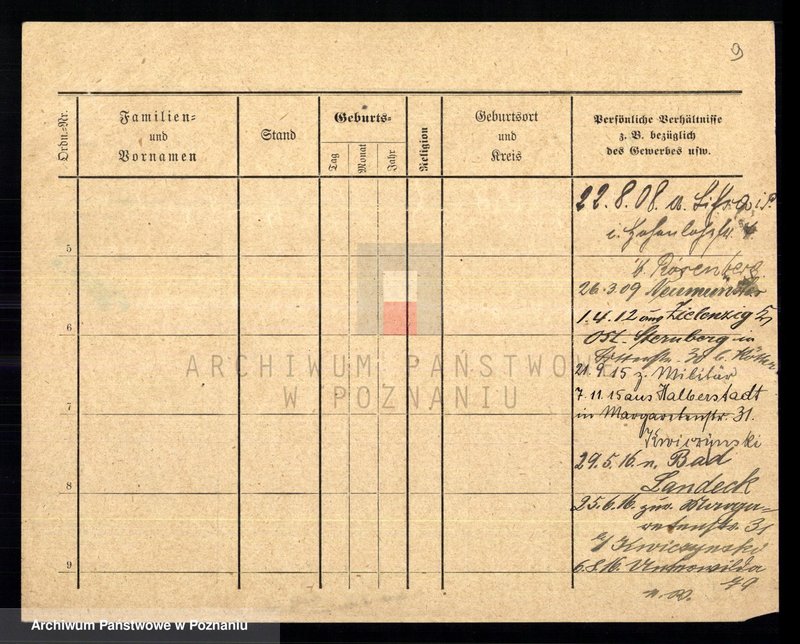 9
Ordn.-Nr.
Familien-
und
Vornamen
Stand
Geburts-
Tag
Monat
Jahr
Religion
Geburtsort
und
Kreis
Persönliche Verhältnisse
z. B. bezüglich
des Gewerbes usw.
22.8.08.
i.
5
b. Rosenberg
26.3.09 Neumünster
1.4.12 aus Zielenzig
6
Ost-Sternberg in
21.9.15 z. Militär
7.11.15 aus Halberstadt
7
in Margaretenstr. 31.
Kwiczynski
29.5.16. n. Bad
8
Landeck
25.6.16. zur. Marga-
retenstr. 31
b/ Kwiczynski
9
6.8.16. Unterwilda
ARCHIWUM PAŃSTWOWE
W POZNANIU
Archiwum Państwowe w Poznaniu